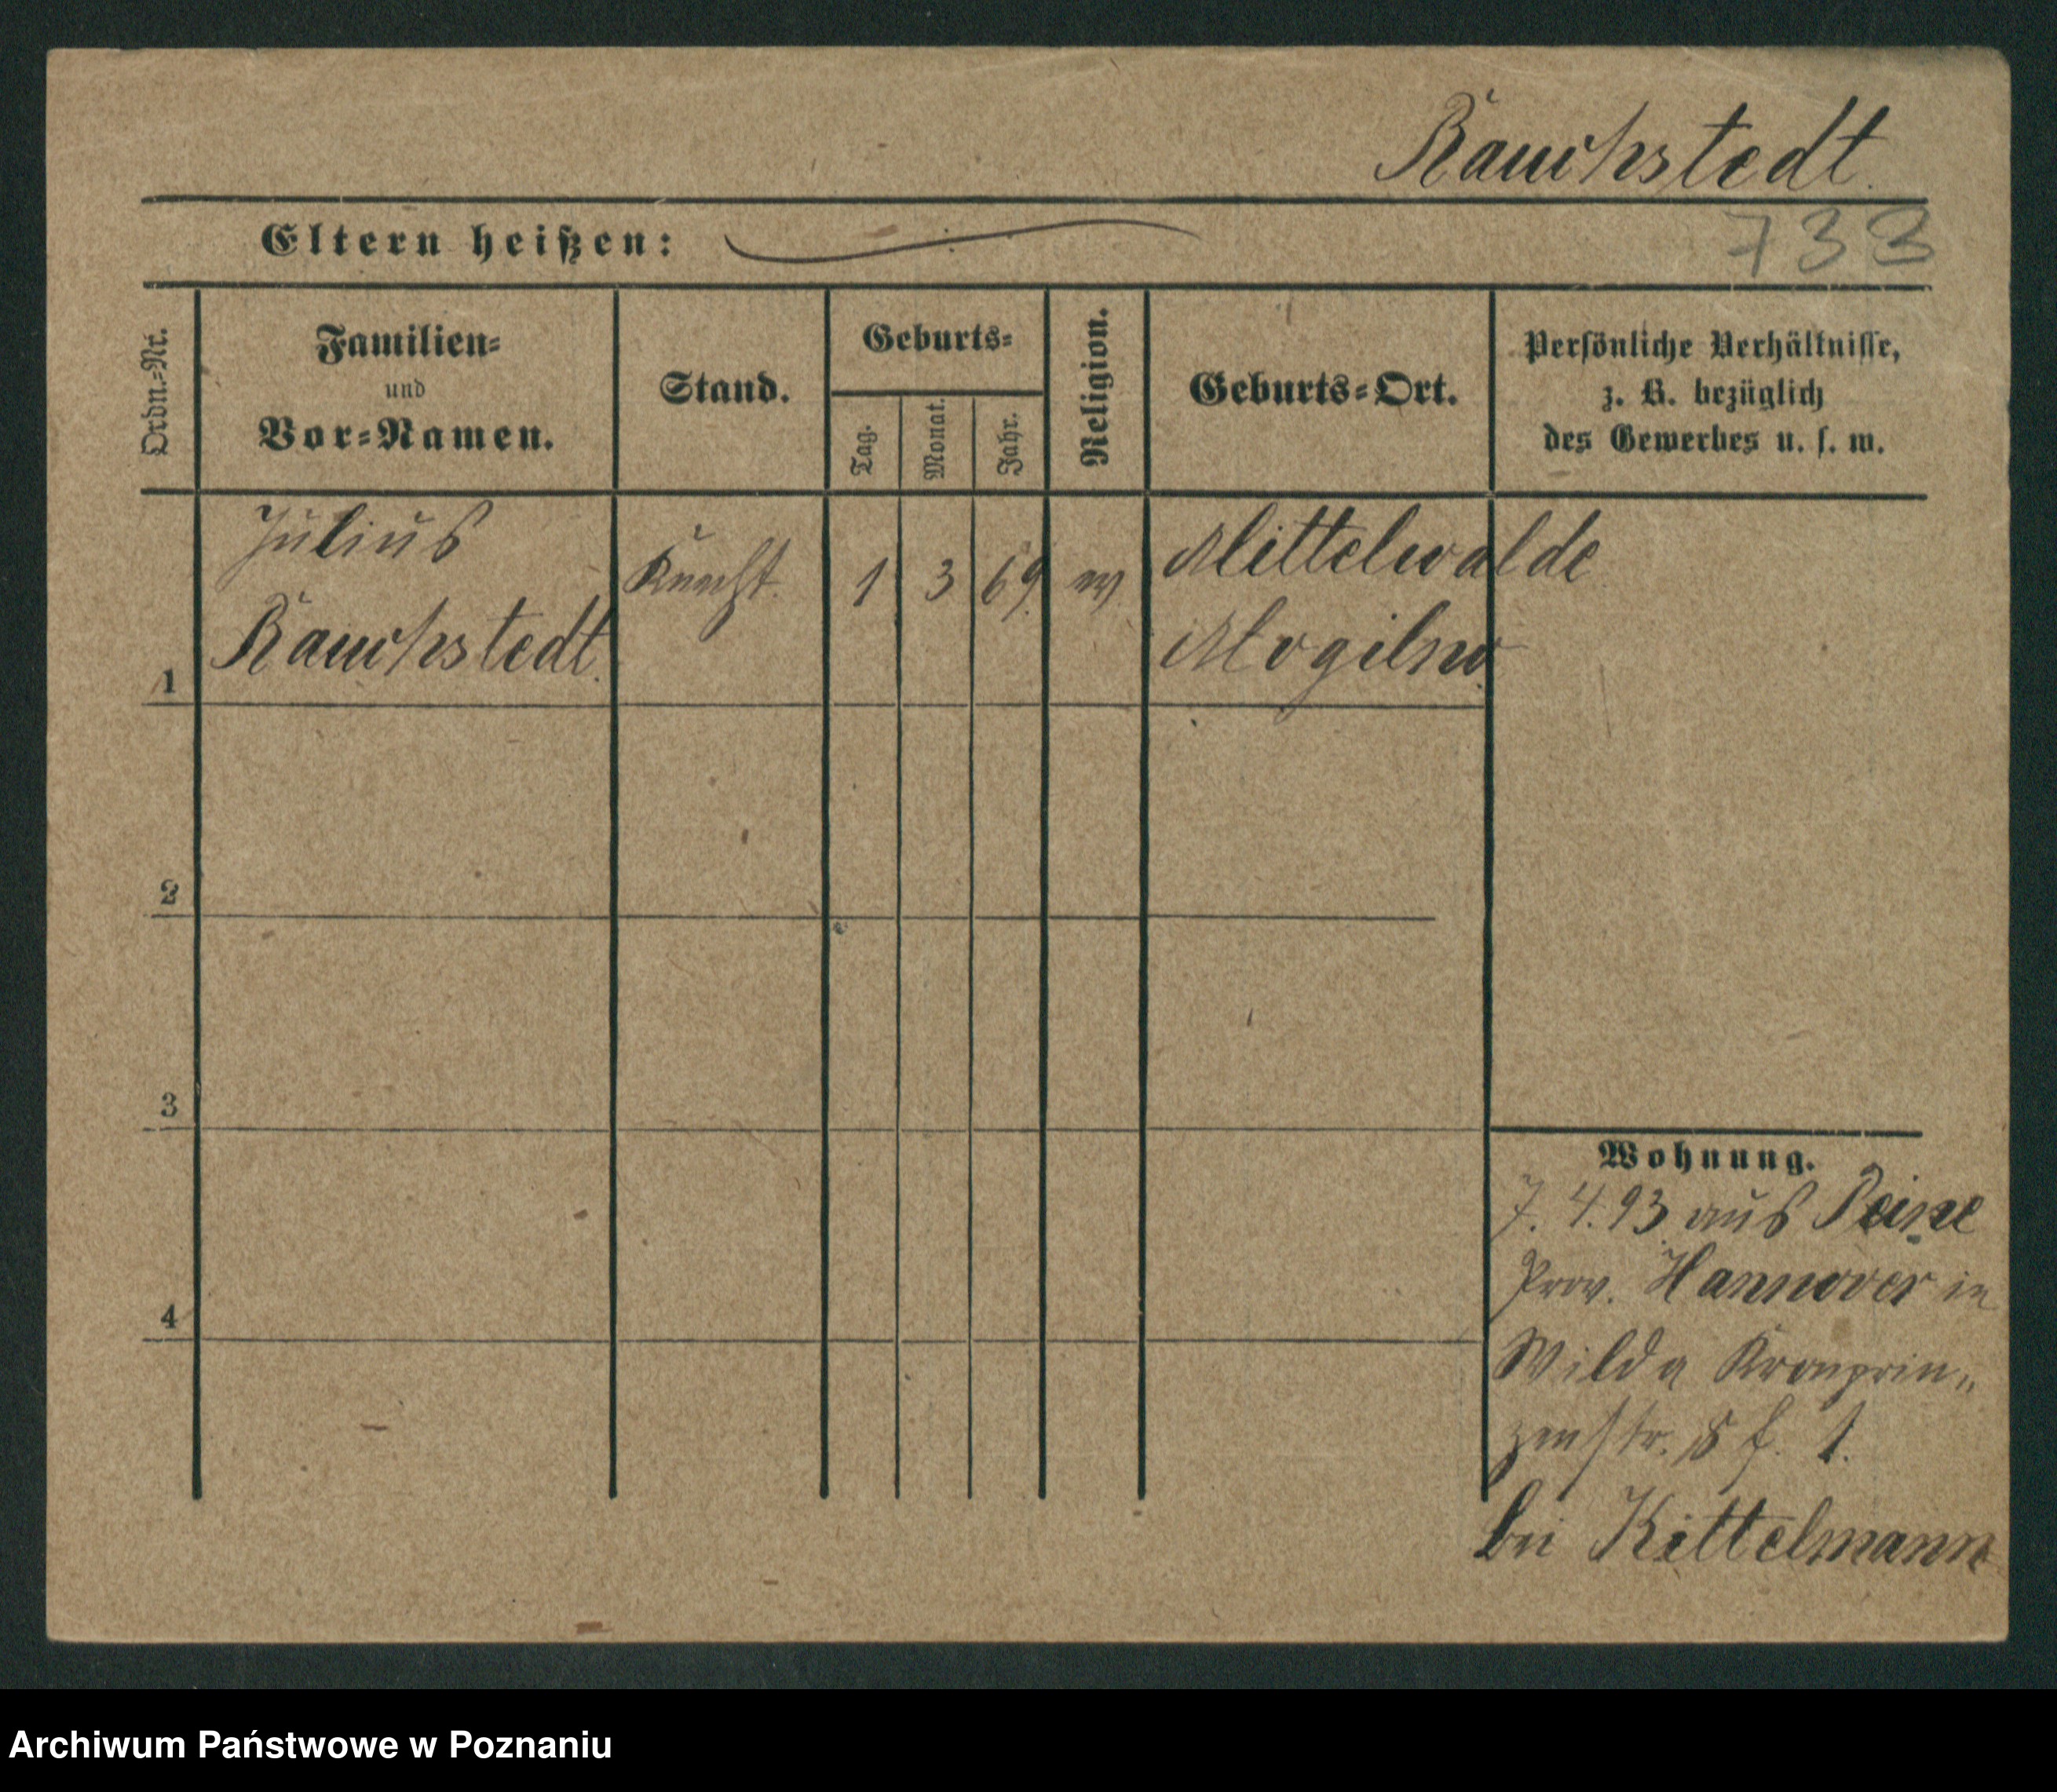 Rauchstedt.
Eltern heißen:
733
Ordn.-Nr.
Familien-
und
Vor-Namen.
Stand.
Geburts-
Tag.
Monat.
Jahr.
Religion.
Geburts-Ort.
Persönliche Verhältnisse,
z. B. bezüglich
des Gewerbes u. s. w.
1
Julius
Rauchstedt.
Knecht.
1
3
69.
ev
Mittelwalde
Mogilno.
2
3
4
Wohnung.
7. 4. 93 aus Peine
Prov. Hannover in
Wilda Kronprin„
zenstr.
bei Kittelmann
Archiwum Państwowe w Poznaniu